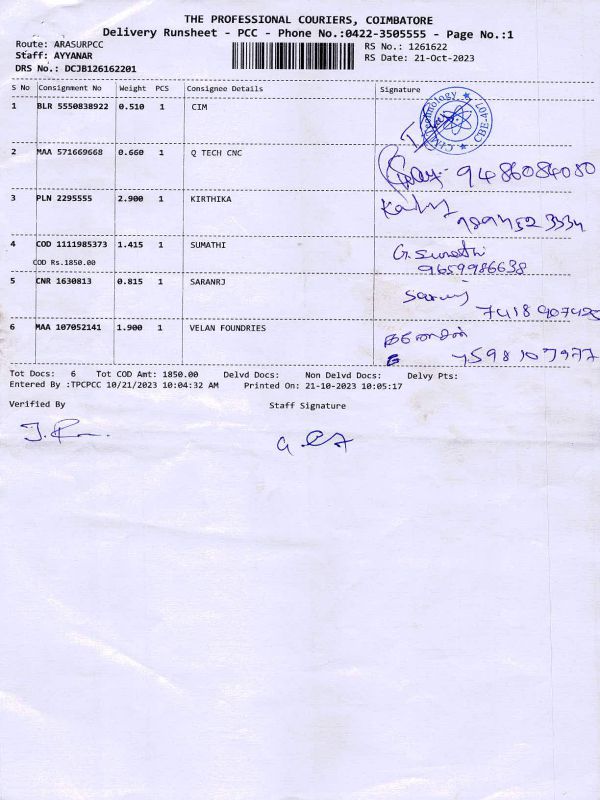 THE PROFESSIONAL COURIERS, COIMBATORE
Delivery Runsheet - PCC - Phone No.:0422-3505555 - Page No.:1
Route: ARASURPCC
RS No.: 1261622
Staff: AYYANAR
RS Date: 21-Oct-2023
DRS No.: DCJB126162201
S No Consignment No Weight PCS Consignee Details Signature
1 BLR 5550838922 0.510 1 CIM
2 MAA 571669668 0.660 1 Q TECH CNC
9486084080
3 PLN 2295555 2.900 1 KIRTHIKA
4 COD 1111985373 1.415 1 SUMATHI G. Sumathi
COD Rs.1850.00 9659986638
5 CNR 1630813 0.815 1 SARANRJ
7418907420
6 MAA 107052141 1.900 1 VELAN FOUNDRIES
7598107977
Tot Docs: 6 Tot COD Amt: 1850.00 Delvd Docs: Non Delvd Docs: Delvy Pts:
Entered By :TPCPCC 10/21/2023 10:04:32 AM Printed On: 21-10-2023 10:05:17
Verified By Staff Signature